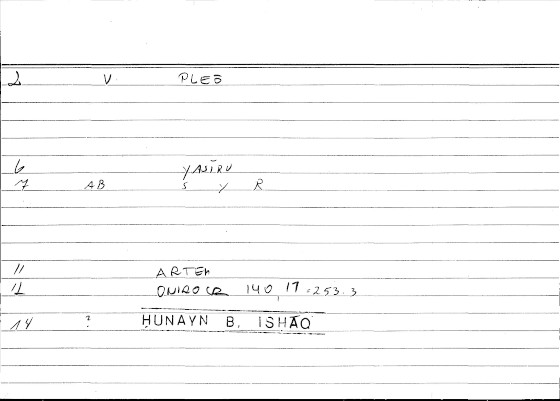 2 V. PLEB
6 YASĪRU
7 AB S Y R
11 ARTEM
12 ONIROCR 140,17 = 253.3
14 ? ḤUNAYN B. ISḤĀQ